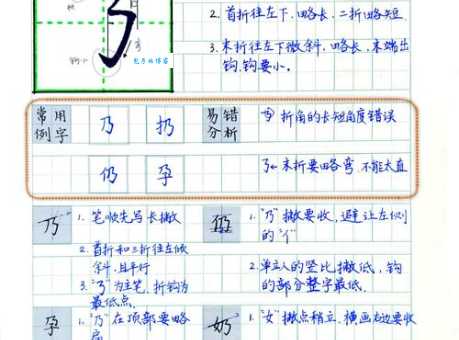 2. 首折往左下,略长,二折略短.
3. 末折往左下微斜,略长,末端出
钩,钩要小。
钩小
常用
例字
乃
扔
仍
孕
易错
分析
折角的长短角度错误
末折要略弯.不能太直
乃
1. 笔顺先写长撇
2. 首折和三折往左倾
斜,且平行
3. 为主笔,折钩为
最低点.
仍
1. "乃"撇要收,避让左侧
的"亻"
2. 单立人的竖比撇低,钩
的部分整字最低.
孕
1. "乃"在顶部要略
奶
1. "女"撇点稍立.横画右边要收